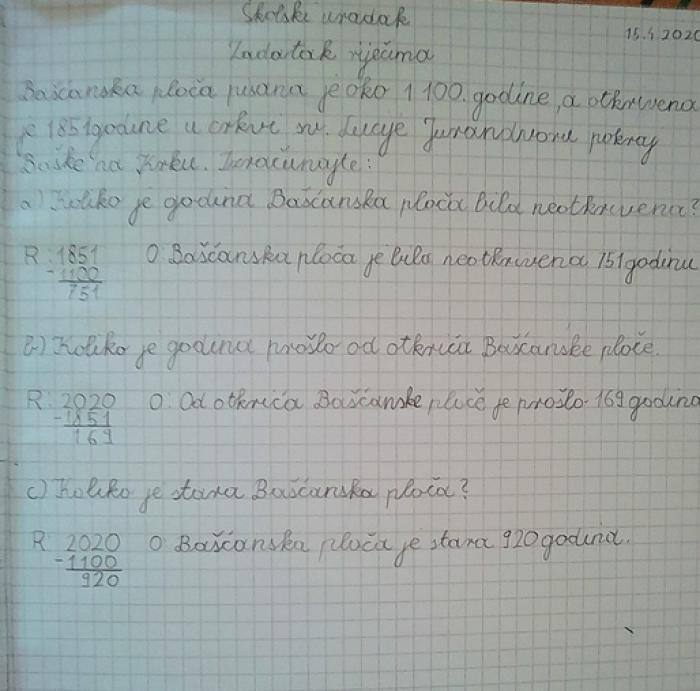 Školski uradak
15.4.2020
Zadatak riječima
Bašćanska ploča pisana je oko 1100. godine, a otkrivena
je 1851 godine u crkvi sv. Lucije Jurandvoru pokraj
Baške na Krku. Izračunajte:
a) Koliko je godina Bašćanska ploča bila neotkrivena?
R: 1851 O Bašćanska ploča je bila neotkrivena 751 godinu
-1100
751
b) Koliko je godina prošlo od otkrića Bašćanske ploče.
R: 2020 O: Od otkrića Bašćanske ploče je prošlo 169 godina
-1851
169
c) Koliko je stara Bašćanska ploča?
R 2020 O Bašćanska ploča je stara 920 godina.
-1100
920